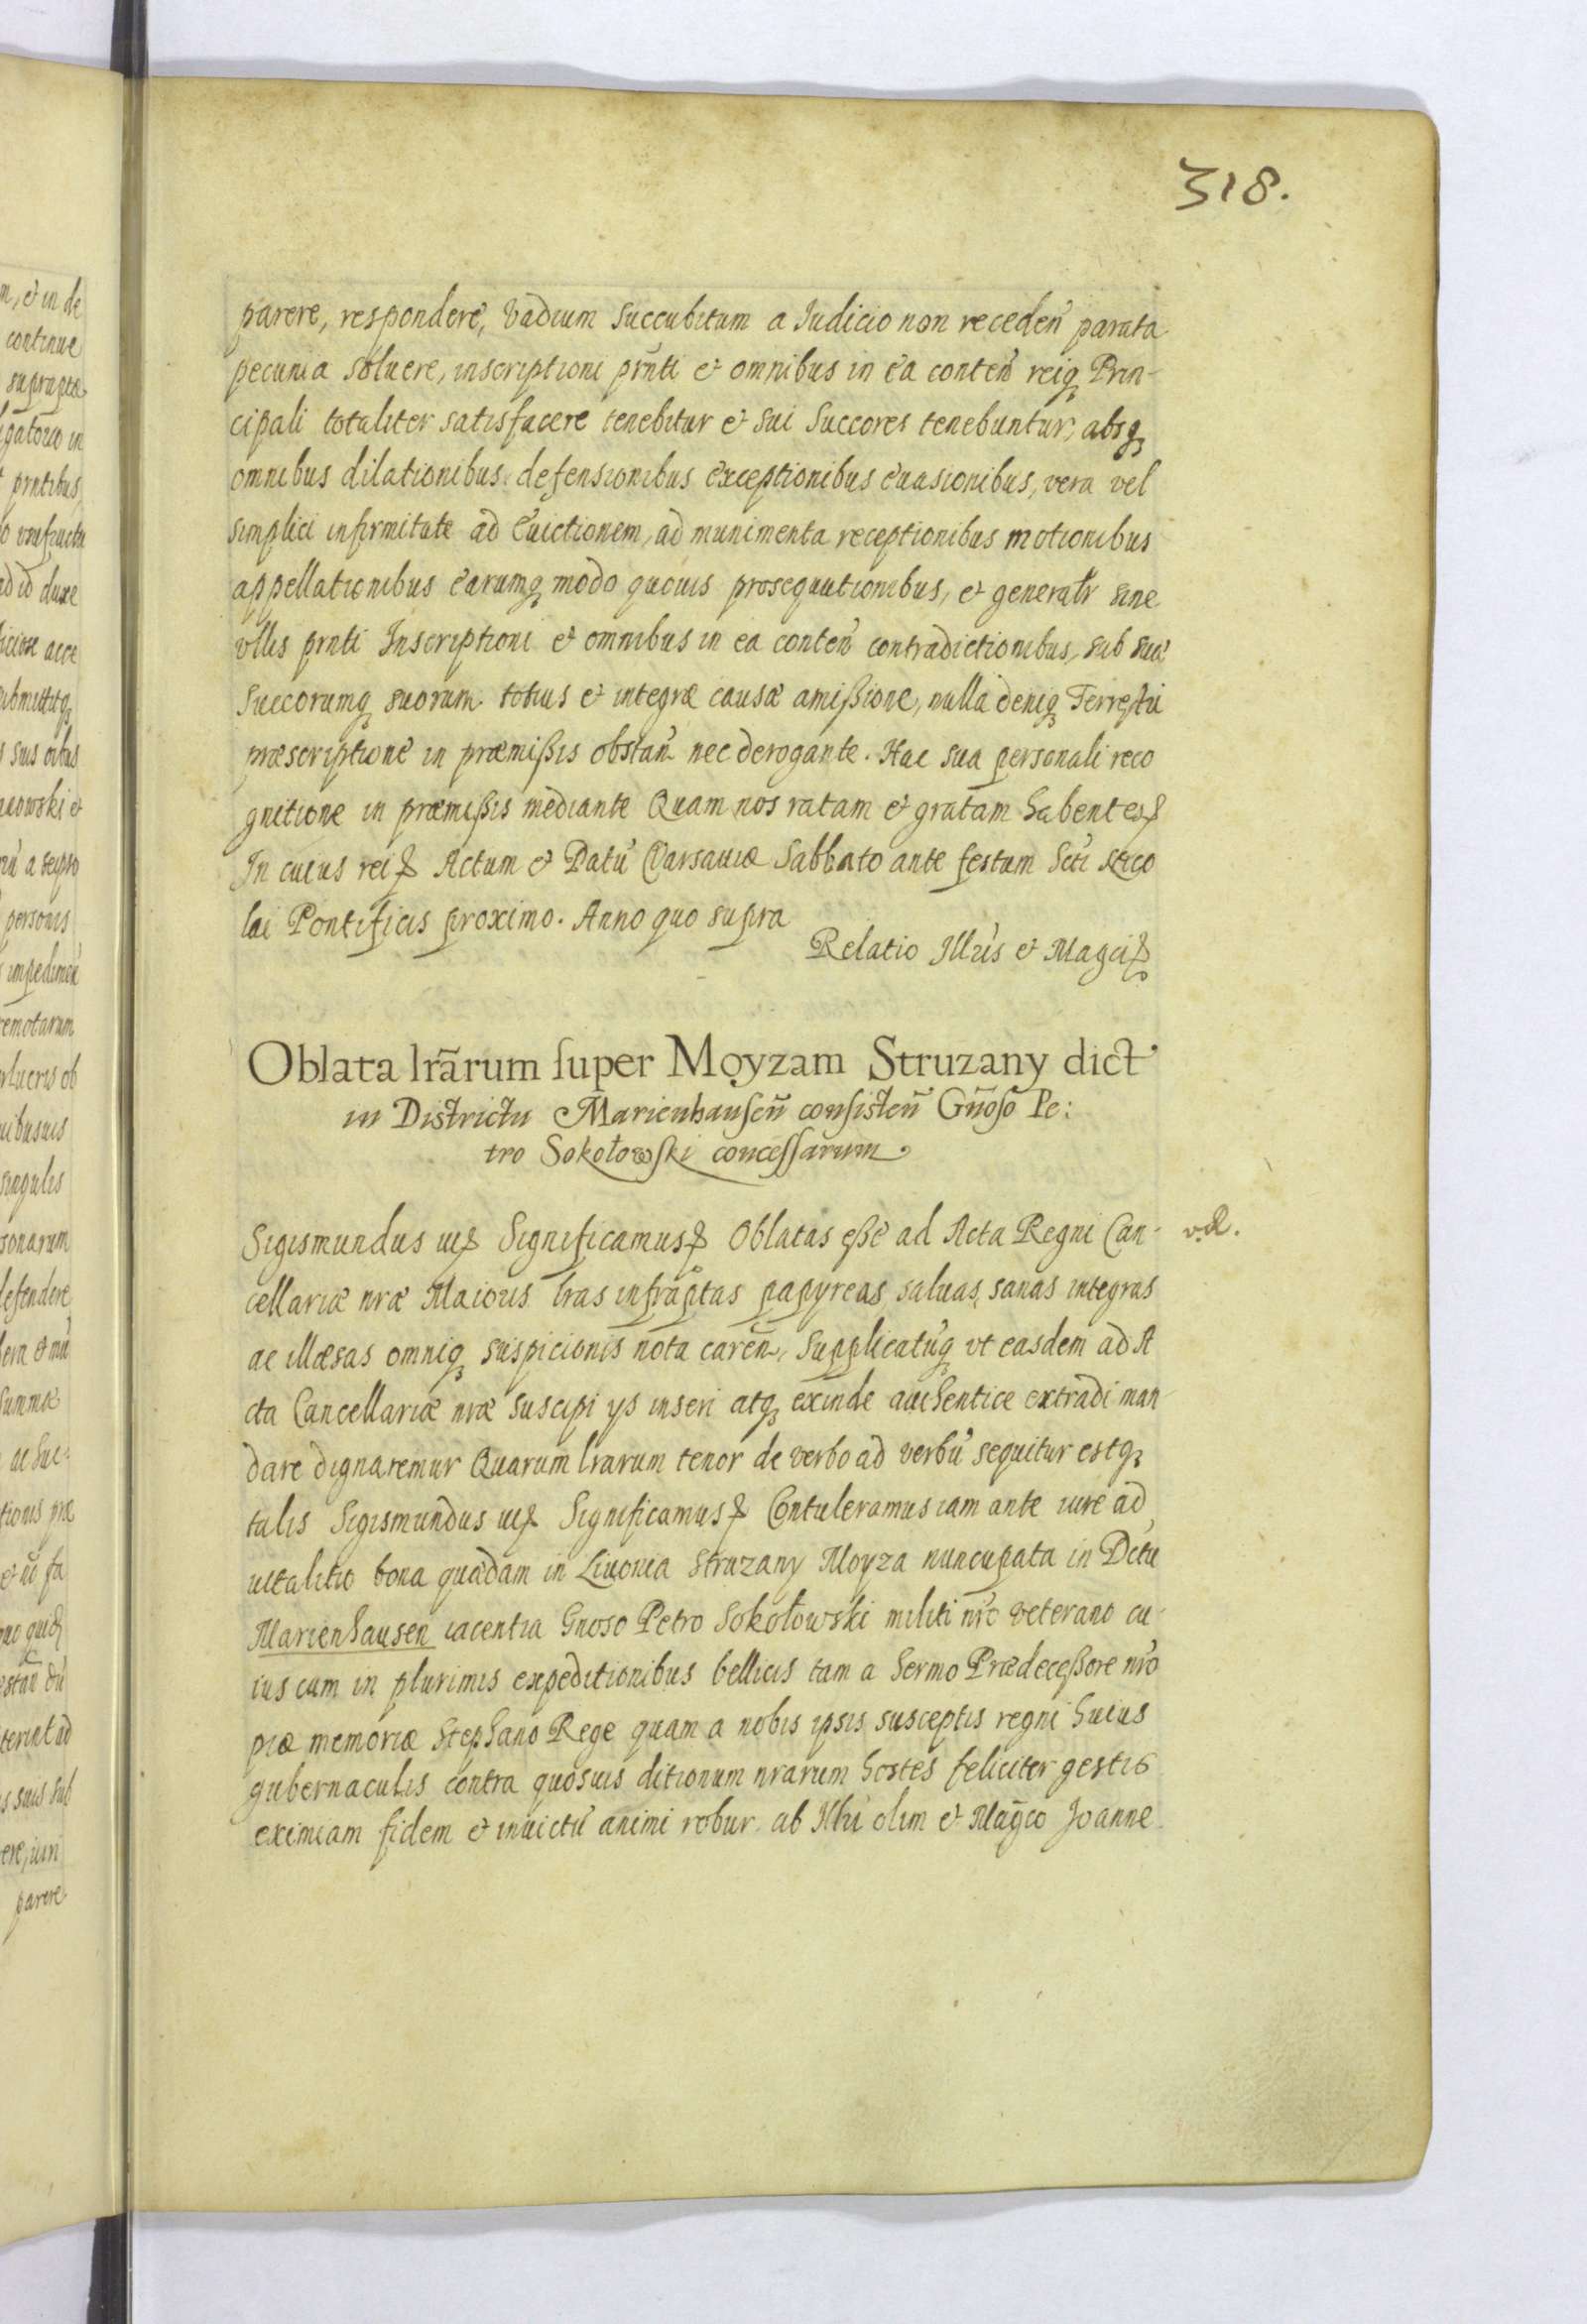 318.
parere, respondere, Vadium succubitum a Iudicio non receden̄ parata
pecunia soluere, inscriptioni prn̄ti et omnibus in ea conten̄ reiq3 Prin-
cipali totaliter satisfacere tenebitur et sui Succores tenebuntur, absq3
omnibus dilationibus defensionibus exceptionibus euasionibus, vera vel
simplici infirmitate ad Euictionem, ad munimenta receptionibus motionibus
appellationibus earumq3 modo quouis prosequutionibus, et generalr sine
vllis prnti Inscriptioni et omnibus in ea conten̄ contradictionibus, sub sua
Succorumq3 suorum totius et integræ causæ amißione, nulla deniq3 Terrestri
præscriptione in præmißis obstan̄ nec derogante. Hac sua personali reco
gnitione in præmißis mediante Quam nos ratam et gratam habentes etc
In cuius rei etc Actum et Datū Varsauiæ Sabbato ante festum Scti Nico
lai Pontificis proximo. Anno quo supra
Relatio Illris et Magci etc
Oblata lrārum super Moyzam Struzany dict
in Districtu Marienhausen̄ consisten̄ Gn̄oso Pe:
tro Sokołowski concessarum
Sigismundus iii etc Significamus etc Oblatas eße ad Acta Regni Can-
v.R.
cellariæ nræ Maioris lras infraptas papyreas saluas, sanas integras
ac illæsas omniq3 suspicionis nota caren̄, Supplicatūq3 vt easdem ad A
cta Cancellariæ nræ suscipi ys inseri atq3 exinde authentice extradi man
dare dignaremur Quarum lrarum tenor de verbo ad verbū sequitur estq3
talis Sigismundus iii etc Significamus etc Contuleramus iam ante iure ad
uitalitio bona quædam in Liuonia Struzany Moyza nuncupata in Dctu
Marienhausen iacentia Gnoso Petro Sokołowski militi nro veterano cu
ius cum in plurimis expeditionibus bellicis tam a Sermo Prædeceßore nro
piæ memoriæ Stephano Rege quam a nobis ipsis susceptis regni huius
gubernaculis contra quosuis ditionum nrarum hostes feliciter gestis
eximiam fidem et inuictū animi robur ab Illri olim et Magco Joanne